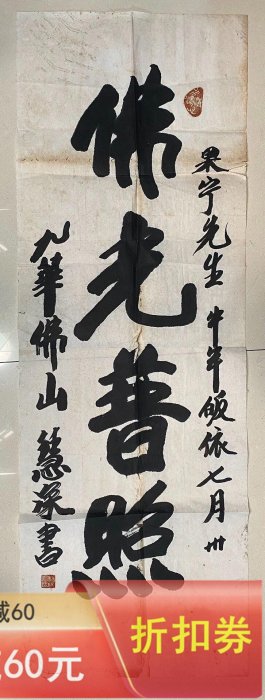 佛光普照
果宁先生 牛年皈依七月卅
九華佛山 慧深書
减60
60元
折扣券